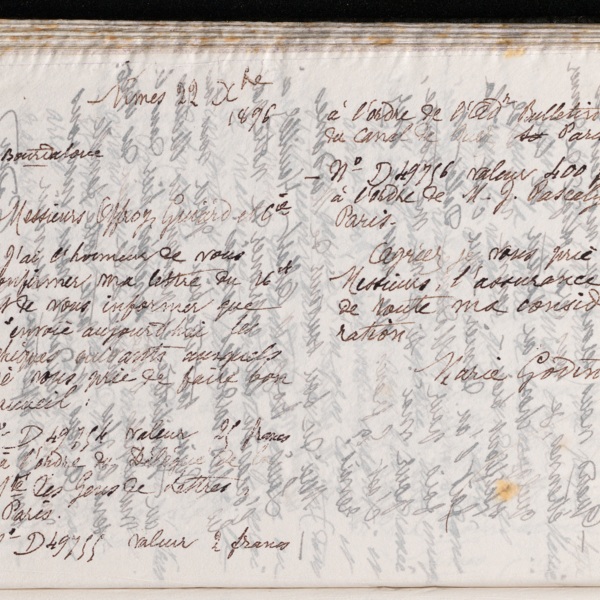 Nimes 22 Xbre
1896
Bourdaloue
Messieurs Offroy Guiard et Cie
J'ai l'honneur de vous
onfirmer ma lettre du 16 ct
t de vous informer que
'envoie aujourd'hui les
hèques suivants auxquels
e vous prie de faire bon
accueil :
No D 49754 valeur 25 francs
à l'ordre de
Sté des Gens de Lettres
Paris.
No D 49755 valeur 2 francs
à l'ordre de l'Adon Bulletin
du Canal de Paris
- No D 49756 valeur 400 f
à l'ordre de M. J. Pascaly
Paris.
Agréer je vous prie
Messieurs, l'assurance
de toute ma considé
ration
Marie Godin